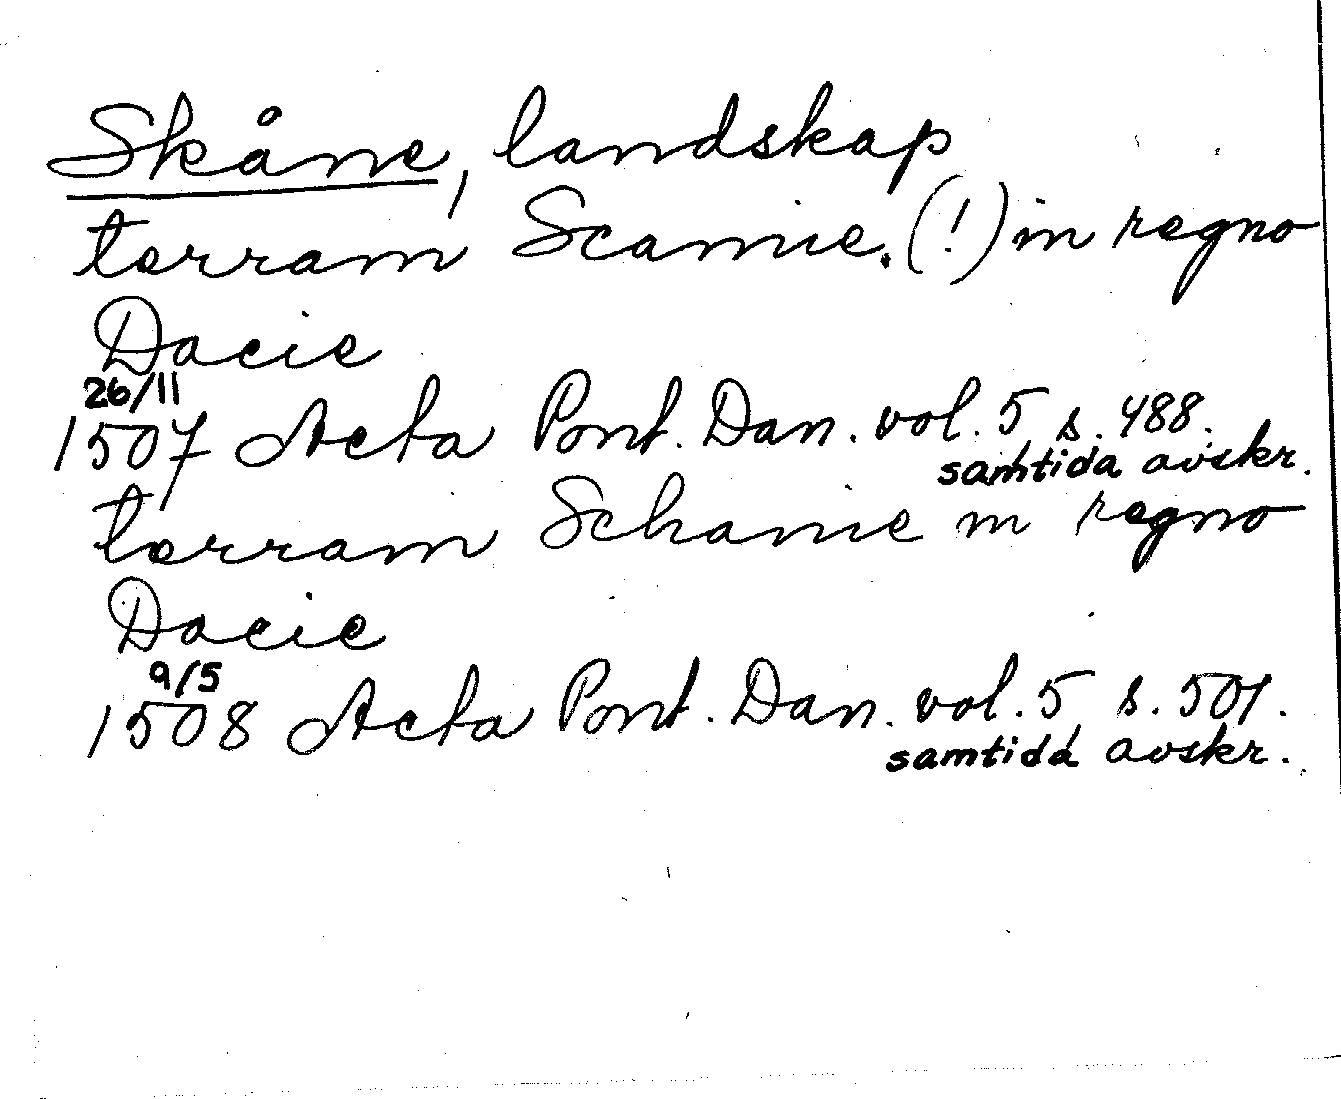 Skåne, landskap
terram Scamie. (!) in regno
Dacie
26/11
1507 Acta Pont. Dan. vol. 5 s. 488.
samtida avskr.
terram Schanie in regno
Dacie
9/5
1508 Acta Pont. Dan. vol. 5 s. 501.
samtida avskr.